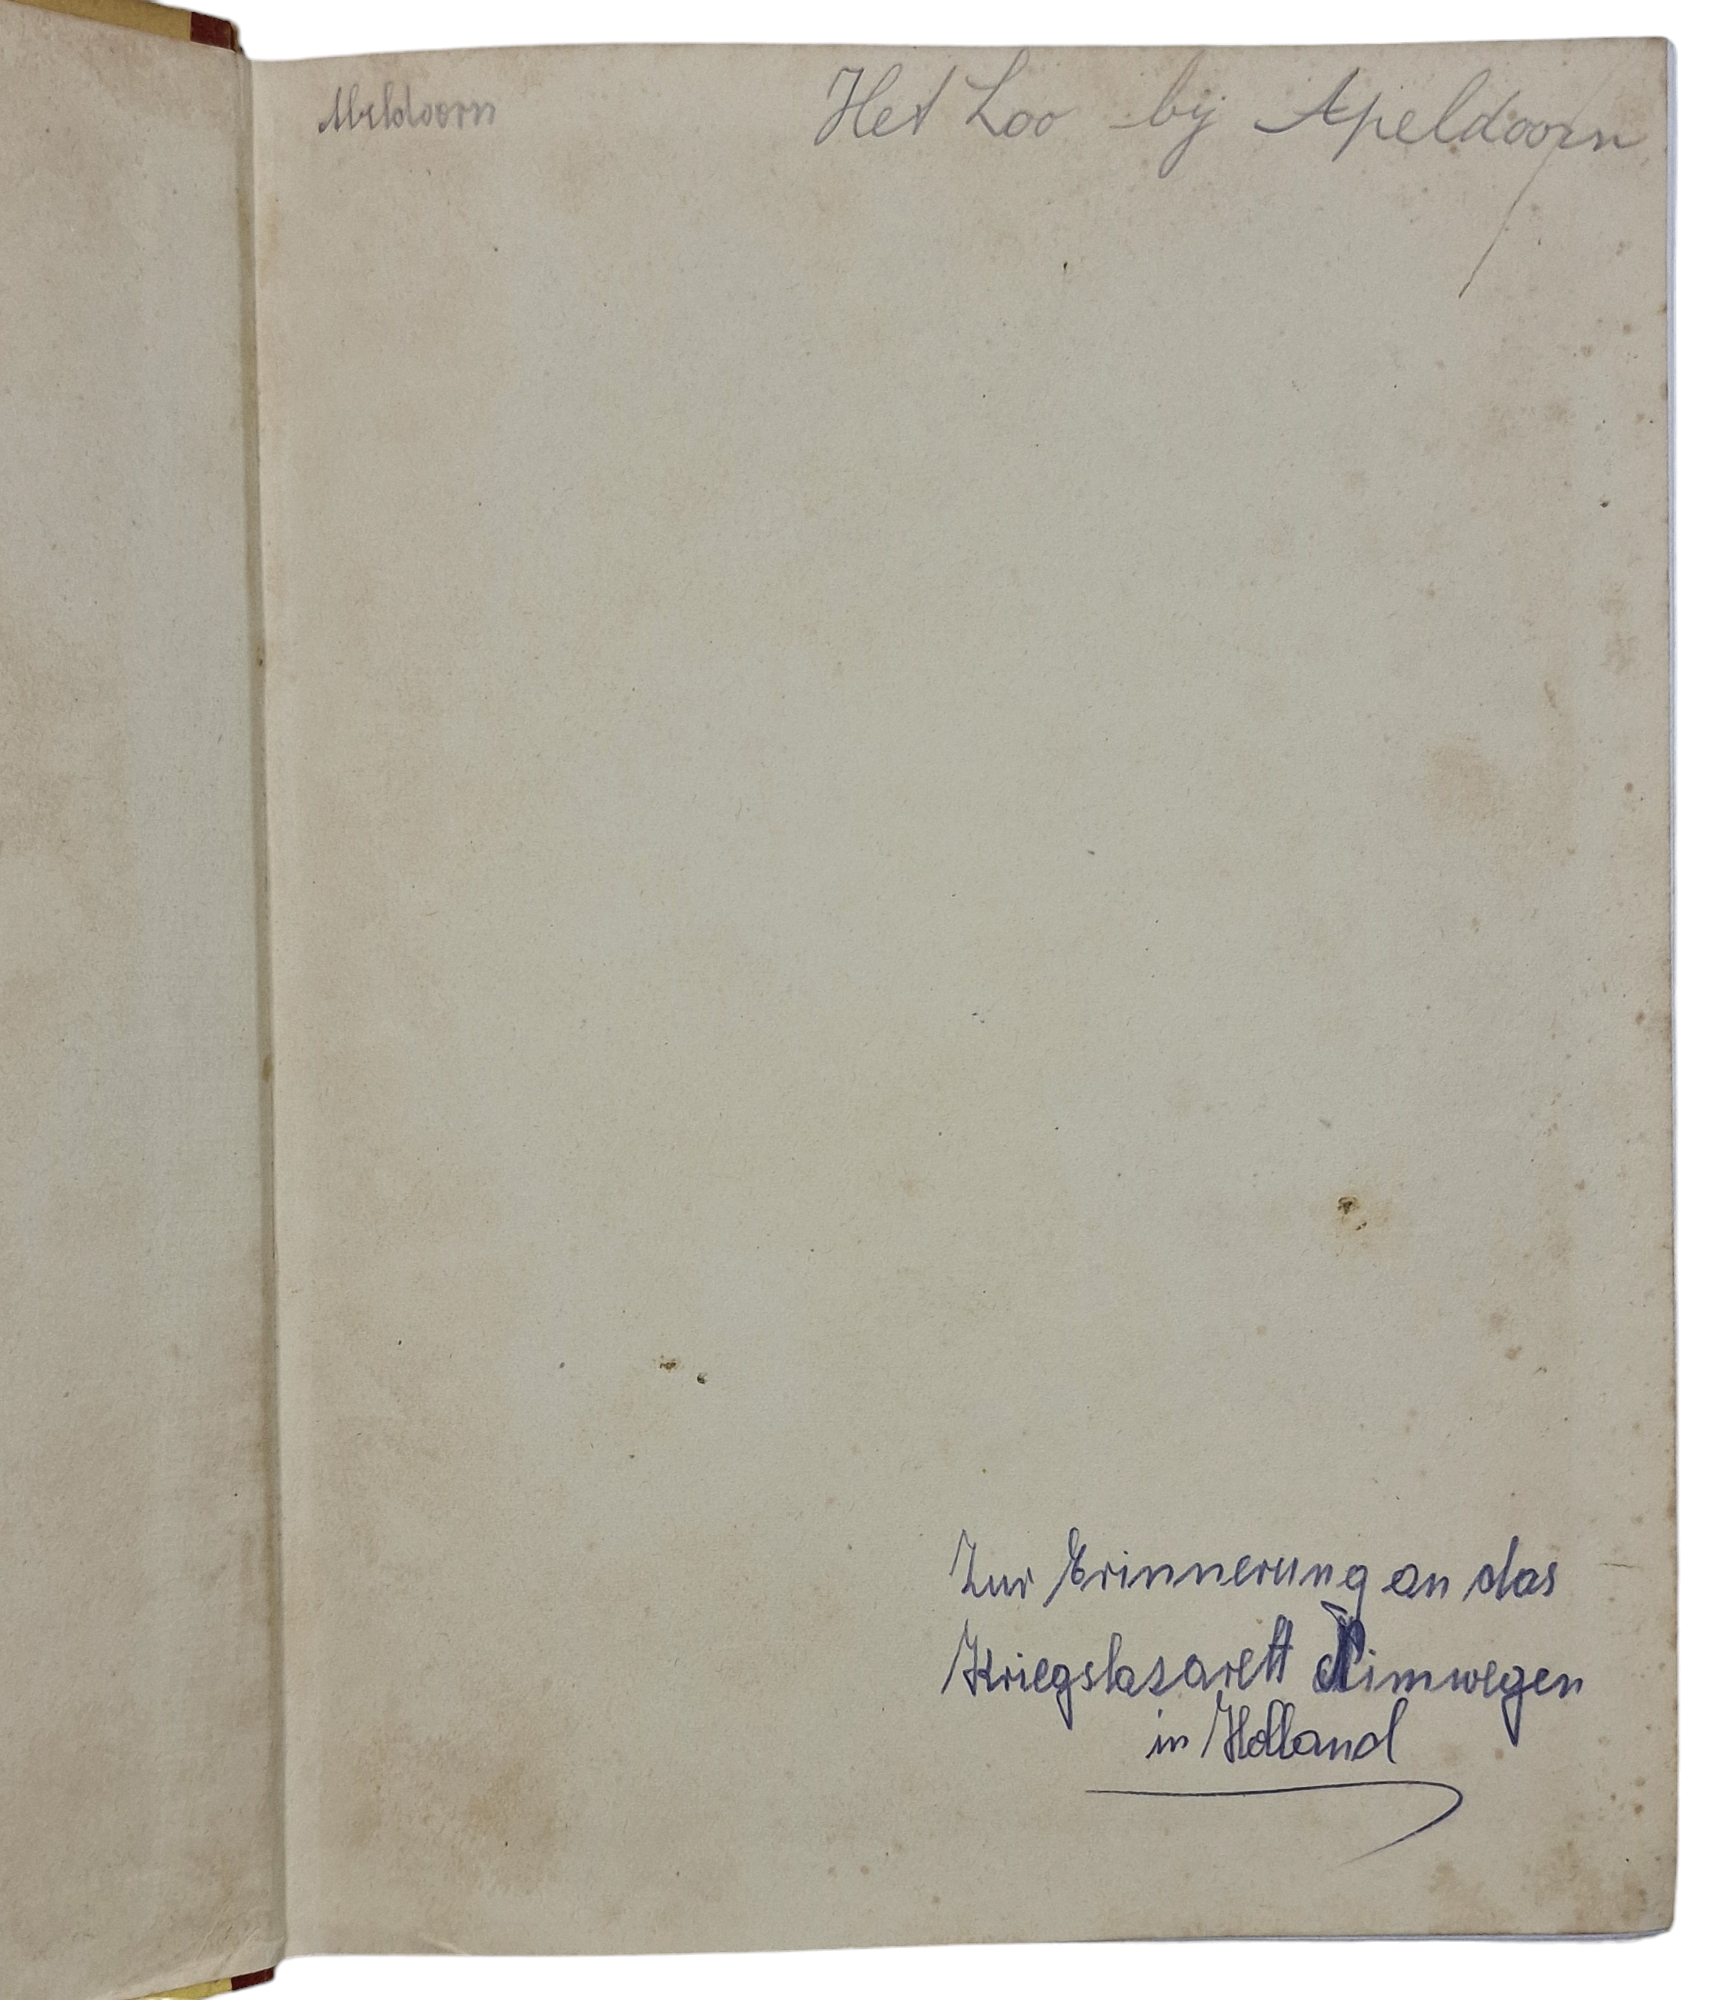 Het Loo bij Apeldoorn
Zur Erinnerung an das
Kriegslazarett Nimwegen
in Holland